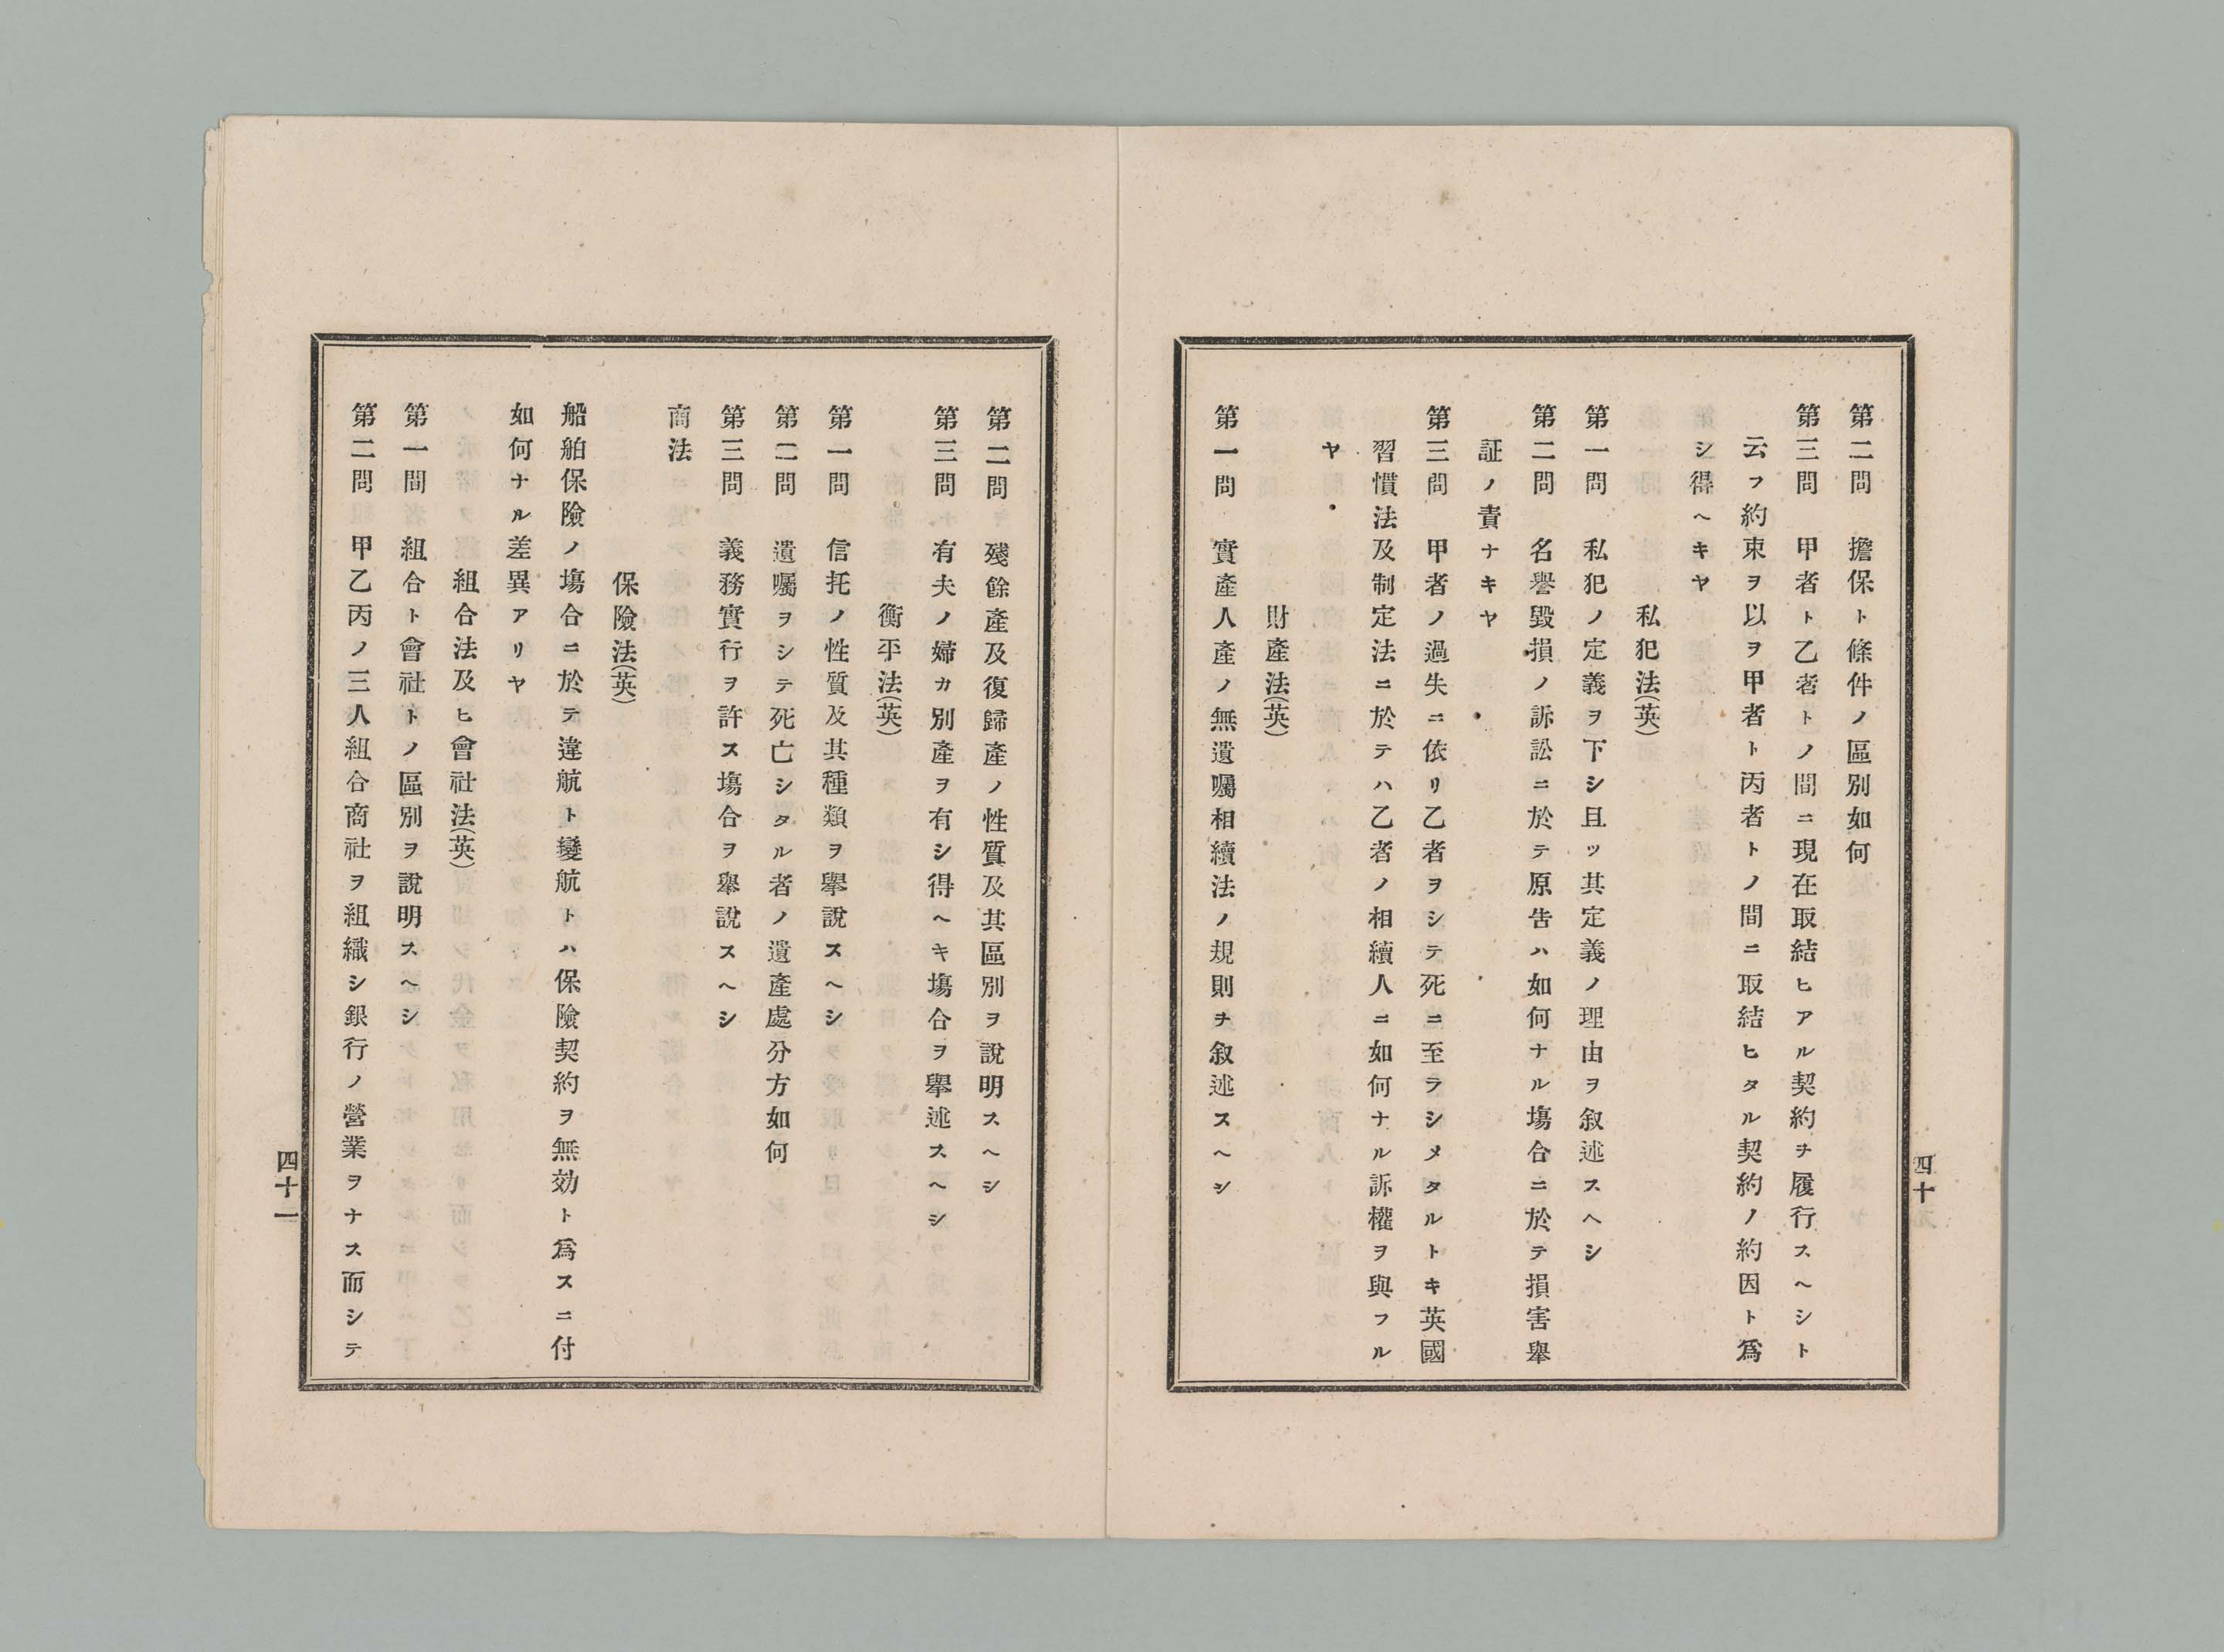 第二問　擔保ト條件ノ區別如何
第三問　甲者ト乙者トノ間ニ現在取結ヒアル契約ヲ履行スヘシト
云フ約束ヲ以ヲ甲者ト丙者トノ間ニ取結ヒタル契約ノ約因ト爲
シ得ヘキヤ
私犯法(英)
第一問　私犯ノ定義ヲ下シ且ツ其定義ノ理由ヲ叙述スヘシ
第二問　名譽毀損ノ訴訟ニ於テ原告ハ如何ナル塲合ニ於テ損害舉
証ノ責ナキヤ
第三問　甲者ノ過失ニ依リ乙者ヲシテ死ニ至ラシメタルトキ英國
習慣法及制定法ニ於テハ乙者ノ相續人ニ如何ナル訴權ヲ與フル
ヤ
財產法(英)
第一問　實產人產ノ無遺囑相續法ノ規則ヲ叙述スヘシ
四十
第二問　殘餘產及復歸產ノ性質及其區別ヲ說明スヘシ
第三問　有夫ノ婦カ別產ヲ有シ得ヘキ塲合ヲ舉述スヘシ
衡平法(英)
第一問　信托ノ性質及其種類ヲ舉說スヘシ
第二問　遺囑ヲシテ死亡シタル者ノ遺產處分方如何
第三問　義務實行ヲ許ス塲合ヲ舉說スヘシ
商法
保險法(英)
船舶保險ノ塲合ニ於テ違航ト變航トハ保險契約ヲ無効ト爲スニ付
如何ナル差異アリヤ
組合法及ヒ會社法(英)
第一問　組合ト會社トノ區別ヲ說明スヘシ
第二問　甲乙丙ノ三人組合商社ヲ組織シ銀行ノ營業ヲナス而シテ
四十一